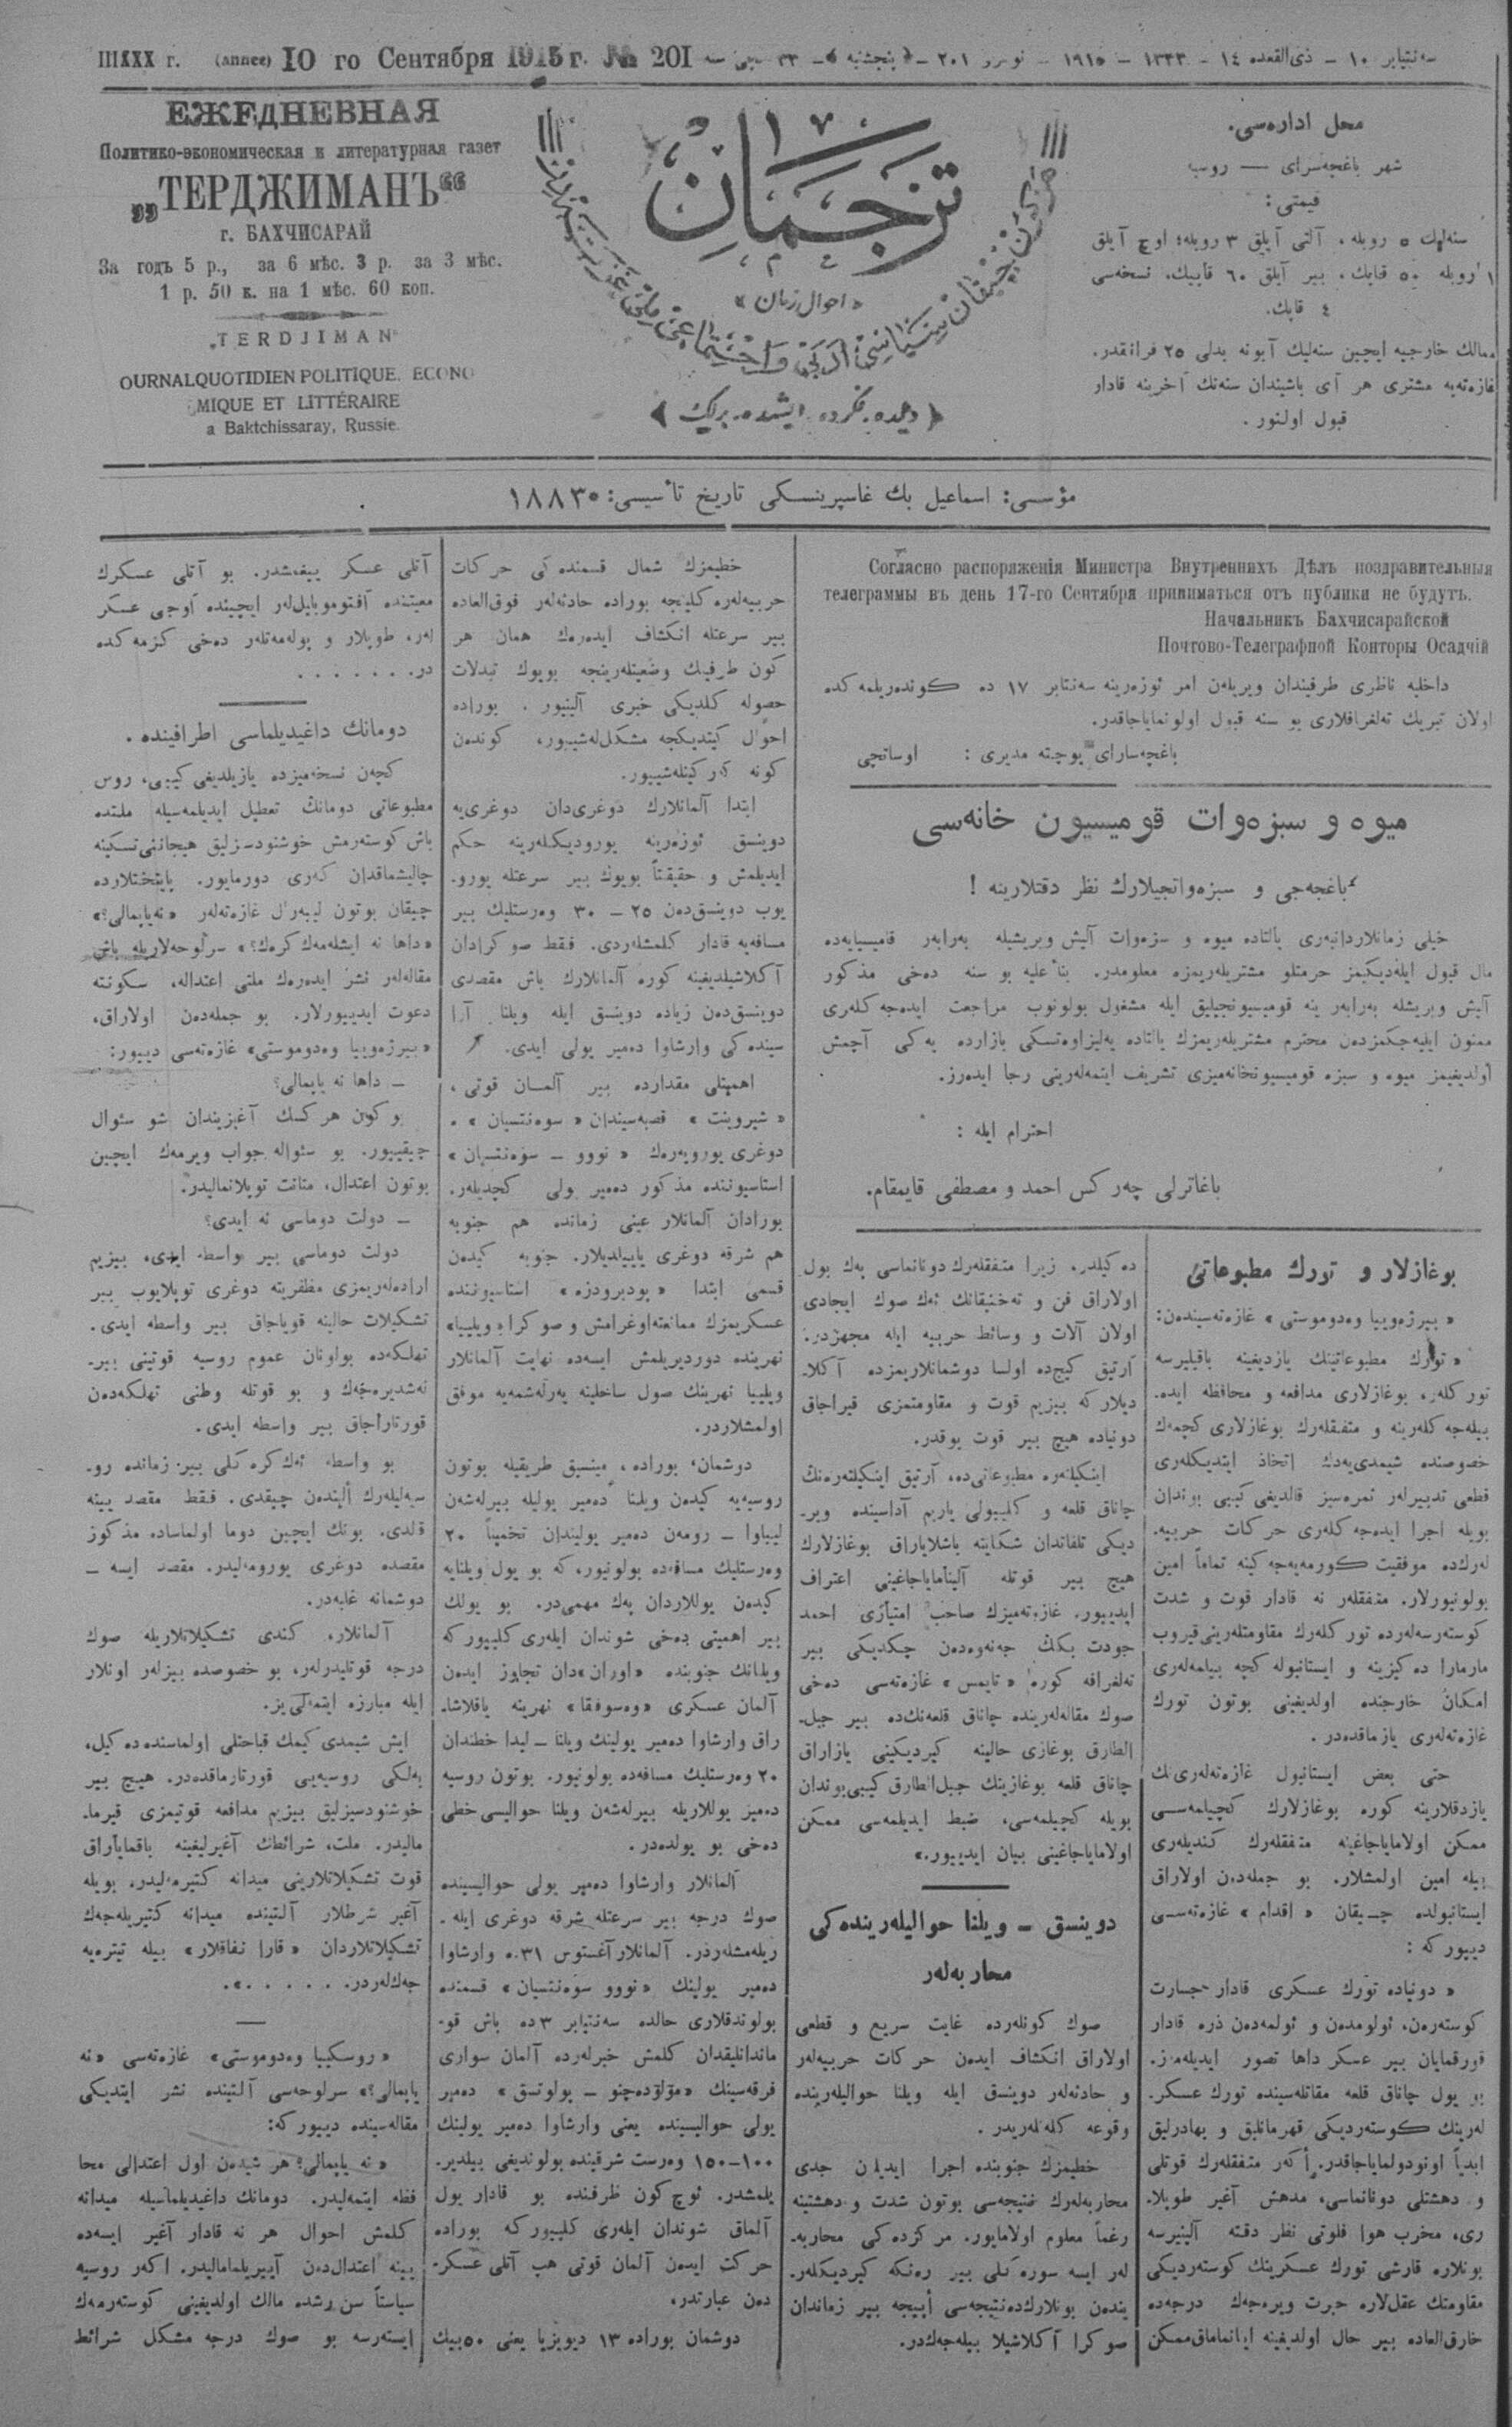 IIIXXX г. (аnnee) 10 го Сентября 1915 г. № 201
سه‌نتیابر ١٠ – ذی‌القعده ١٤ – ١٣٣٣ – ١٩١٥ – نومرو ٢٠١ – «پنجشنبه» – ٣٣ سنه
ЕЖЕДНЕВНАЯ
Политико-экономическая и литературная газет
„ТЕРДЖИМАНЪ“
г. БАХЧИСАРАЙ
За годъ 5 р., за 6 мѣс. 3 р. за 3 мѣс.
1 р. 50 к. на 1 мѣс. 60 коп.
„TERDJIMAN“
OURNALQUOTIDIEN POLITIQUE. ECONO
MIQUE ET LITTÉRAIRE
a Baktchissaray, Russie.
ترجمان
«احوال زمان»
محل اداره‌سی.
شهر باغچه‌سرای — روسیه
قیمتی:
سنه‌لیك ٥ روبله، آلتی آیلق ٣ روبله؛ اوچ آیلق
١ روبله ٥٠ قپایك، بیر آیلق ٦٠ قاپیك، نسخه‌سی
٤ قاپك.
ممالك خارجیه ایچین سنه‌لیك آبونه بدلی ٢٥ فرانقدر.
غازه‌ته‌یه مشتری هر آی باشیندان سنه‌نك آخرینه قادار
قبول اولنور.
مؤسسی: اسماعیل بك غاسپرینسكی تاریخ تأسیسی: ١٨٨٣
Согласно распоряженія Министра Внутреннихъ Дѣлъ поздравительныя
телеграммы въ день 17-го Сентября приниматься отъ публики не будутъ.
Начальникъ Бахчисарайской
Почтово-Телеграфной Конторы Осадчій
داخلیه ناظری طرفیندان ویریله‌ن امر ئوزه‌رینه سه‌نتابر ١٧ ده كونده‌ریلمه‌كده
اولان تبریك ته‌لغرافلاری بو سنه قبول اولونمایاجاقدر.
باغچه‌سارای پوچته مدیری: اوساتچی
میوه و سبزه‌وات قومیسیون خانه‌سی
باغچه‌جی و سبزه‌واتجیلارك نظر دقتلارینه !
خیلی زمانلاردانبه‌ری یالتاده میوه و سبزه‌وات آلیش ویریشیله به‌رابه‌ر قامیسیایه‌ده
مال قبول ایله‌دیكیمز حرمتلو مشتریله‌ریمزه معلومدر. بناً علیه بو سنه ده‌خی مذكور
آلیش ویریشله به‌رابه‌ر ینه قومیسیونجیلیق ایله مشغول بولونوب مراجعت ایده‌جه‌كله‌ری
ممنون ایلیه‌جكمزدن محترم مشتریله‌ریمزك یالتاده یه‌لیزاوه‌تسكی بازارده یه‌كی آچمش
اولدیغیمز میوه و سبزه قومیسیونخانه‌میزی تشریف ایتمه‌له‌رینی رجا ایده‌رز.
احترام ایله:
باغاترلی چه‌ركس احمد و مصطفی قایمقام.
بوغازلار و تورك مطبوعاتی
« بیرژه‌وییا وه‌دوموستی » غازه‌ته‌سیندن:
« تورك مطبوعاتینك یازدیغینه باقیلیرسه
توركله‌ر، بوغازلاری مدافعه و محافظه ایده-
بیله‌جه‌كله‌رینه و متفقله‌رك بوغازلاری كچمه‌ك
خصوصنده شیمدی‌یه‌دك اتخاذ ایتدیكله‌ری
قطعی تدبیرله‌ر ثمره‌سیز قالدیغی كیبی بوندان
بویله اجرا ایده‌جه‌كله‌ری حركات حربیه-
له‌رك‌ده موفقیت كورمه‌یه‌جه‌كینه تماماً امین
بولونیورلار. متفقله‌ر نه قادار قوت و شدت
كوسته‌رسه‌له‌رده توركله‌رك مقاومتله‌رینی قیروب
مارمارا ده‌كیزینه و ایستانبوله كچه بیلمه‌له‌ری
امكان خارجنده اولدیغینی بوتون تورك
غازه‌ته‌له‌ری یازماقده‌در.
حتی بعض ایستانبول غازه‌ته‌له‌ری‌نك
یازدقلارینه كوره بوغازلارك كچیلمه‌سی
ممكن اولامایاجاغینه متفقله‌رك كندیله‌ری
بیله امین اولمشلار. بو جمله‌دن اولاراق
ایستانبولده چیقان « اقدام » غازه‌ته‌سی
دیبور كه:
« دونیاده تورك عسكری قادار جسارت
كوسته‌ره‌ن، ئولومدن و ئولمه‌دن ذره قادار
قورقمایان بیر عسكر داها تصور ایدیله‌مز.
بو یول چاناق قلعه مقاتله‌سینده تورك عسكر-
له‌رینك كوسته‌ردیكی قهرمانلیق و بهادرلیق
ابدیاً اونودولمایاجاقدر. أكه‌ر متفقله‌رك قوتلی
و دهشتلی دونانماسی، مدهش آغیر طوبلا-
ری، مخرب هوا فلوتی نظر دقته آلینیرسه
بونلاره قارشی تورك عسكرینك كوسته‌ردیكی
مقاومتك عقل‌لاره حیرت ویره‌جه‌ك درجه‌ده
خارق‌العاده بیر حال اولدیغینه اینانماماق ممكن
ده‌كیلدر. زیرا متفقله‌رك دونانماسی یه‌ك بول
اولاراق فن و ته‌خنیقانك ئه‌ك صوك ایجادی
اولان آلات و وسائط حربیه ایله مجهزدر.
آرتیق كیج‌ده اولسا دوشمانلاریمزده آكلا-
دیلار كه بیزیم قوت و مقاومتمزی قیراجاق
دونیاده هیچ بیر قوت یوقدر.
اینكیلتره مطبوعاتی‌ده، آرتیق اینكیلتره‌نك
چاناق قلعه و كلیبولی یاریم آداسینده ویر-
دیكی تلفاتدان شكایته باشلایاراق بوغازلارك
هیچ بیر قوتله آلینامایاجاغینی اعتراف
ایدییور. غازه‌ته‌میزك صاحب امتیازی احمد
جودت بكك جه‌نه‌وه‌دن چكدیكی بیر
ته‌لغرافه كوره « تایمس » غازه‌ته‌سی ده‌خی
صوك مقاله‌له‌رینده چاناق قلعه‌نك‌ده بیر جبل-
الطارق بوغازی حالینه كیردیكینی یازاراق
چاناق قلعه بوغازینك جبل‌الطارق كیبی بوندان
بویله كچیلمه‌سی، ضبط ایدیلمه‌سی ممكن
اولامایاجاغینی بیان ایدییور.»
دوینسق – ویلنا حوالیله‌رینده‌كی
محاربه‌له‌ر
صوك كونله‌رده غایت سریع و قطعی
اولاراق انكشاف ایده‌ن حركات حربیه‌له‌ر
و حادثه‌له‌ر دوینسق ایله ویلنا حوالیله‌رینده
وقوعه كلمه‌له‌ریدر.
خطیمزك جنوبنده اجرا ایدیلن جدی
محاربه‌له‌رك نتیجه‌سی بوتون شدت و دهشتینه
رغماً معلوم اولامایور. مركزده‌كی محاربه-
له‌ر ایسه سوره‌كلی بیر ره‌نكه كیردیكله‌ر-
یندن بونلارك‌ده نتیجه‌سی أپیجه بیر زماندان
صوكرا آكلاشیلا بیله‌جه‌ك‌در.
خطیمزك شمال قسمنده‌كی حركات
حربیه‌له‌ره كلینجه بوراده حادثه‌له‌ر فوق‌العاده
بیر سرعتله انكشاف ایده‌ره‌ك همان هر
كون طرفینك وضعیتله‌رینجه بویوك تبدلات
حصوله كلدیكی خبری آلینیور. بوراده
احوال كیتدیكجه مشكل‌له‌شییور، كوندن
كونه كه‌ركینله‌شییور.
ابتدا آلمانلارك دوغری‌دان دوغری‌یه
دوینسق ئوزه‌رینه یورودیكله‌رینه حكم
ایدیلمش و حقیقتاً بویوك بیر سرعتله یورو-
یوب دوینسق‌دن ٢٥ – ٣٠ وه‌رستلیك بیر
مسافه‌یه قادار كلمشله‌ردی. فقط صوكرادان
آكلاشیلدیغینه كوره آلمانلارك باش مقصدی
دوینسق‌دن زیاده دوینسق ایله ویلنا آرا
سینده‌كی وارشاوا ده‌میر یولی ایدی.
اهمیتلی مقدارده بیر آلمان قوتی،
« شیروینت » قصبه‌سیندان « سوه‌نتسیان »
دوغری یورویه‌ره‌ك « نووو – سوه‌نتسیان »
استاسیوننده مذكور ده‌میر یولی كچدیله‌ر.
بورادان آلمانلار عینی زمانده هم جنوبه
هم شرقه دوغری یاییلدیلار. جنوبه كیدن
قسمی ابتدا « پودبرودزه » استاسیوننده
عسكریمزك ممانعته‌اوغرامش و صوكرا « ویلییا»
نهرینده دوردیریلمش ایسه‌ده نهایت آلمانلار
ویلییا نهرینك صول ساحلینه یه‌رله‌شمه‌یه موفق
اولمشلاردر.
دوشمان، بوراده، مینسق طریقیله بوتون
روسیه‌یه كیدن ویلنا ده‌میر یولیله بیرله‌شه‌ن
لیباوا – رومه‌ن ده‌میر یولیندان تخمیناً ٢٠
وه‌رستلیك مسافه‌ده بولونیور، كه بو یول ویلنایه
كیدن یوللاردان یه‌ك مهمی‌در. بو یولك
بیر اهمیتی ده‌خی شوندان ایله‌ری كلییور كه
ویلنانك جنوبنده «اوران»دان تجاوز ایدن
آلمان عسكری «وه‌سوفقا» نهرینه یاقلاشا-
راق وارشاوا ده‌میر یولینك ویلنا – لیدا خطندان
٢٠ وه‌رستلیك مسافه‌ده بولونیور. بوتون روسیه
ده‌میر یوللاریله بیرله‌شه‌ن ویلنا حوالیسی خطی
ده‌خی بو یولده‌در.
آلمانلار وارشاوا ده‌میر یولی حوالیسینده
صوك درجه بیر سرعتله شرقه دوغری ایله-
ریله‌مشله‌ردر. آلمانلار آغستوس ٣١ ه وارشاوا
ده‌میر یولینك «نووو سوه‌نتسیان» قسمنده
بولوندقلاری حالده سه‌نتیابر ٣ ده باش قو-
ماندانلیقدان كلمش خبرله‌رده آلمان سواری
فرقه‌سینك «مولوده‌چنو – پولوتسق» ده‌میر
یولی حوالیسینده یعنی وارشاوا ده‌میر یولینك
١٠٠–١٥٠ وه‌رست شرقینده بولوندیغی بیلدیر-
یلمشدر. ئوچ كون ظرفنده بو قادار یول
آلماق شوندان ایله‌ری كلییور كه بوراده
حركت ایدن آلمان قوتی هپ آتلی عسكر-
دن عبارتدر.
دوشمان بوراده ١٣ دیویزیا یعنی ٥٠ بیك
آتلی عسكر ییغمشدر. بو آتلی عسكرك
معیتنده آفتوموبایل‌له‌ر ایچینده آوجی عسكر
له‌ر، طوبلار و پوله‌مه‌تله‌ر ده‌خی كزمه‌كده
در. . . . . . .
دومانك داغیدیلماسی اطرافینده.
كچه‌ن نسخه‌میزده یازیلدیغی كیبی، روس
مطبوعاتی دومانك تعطیل ایدیلمه‌سیله ملتده
باش كوسته‌رمش خوشنودسزلیق هیجاننی تسكینه
چالیشماقدان كه‌ری دورمایور. پایتختلارده
چیقان بوتون لیبه‌رال غازه‌ته‌له‌ر «نه‌یاپمالی؟»
«داها نه ایشله‌مه‌ك كره‌ك؟» سرلوحه‌لاریله باش
مقاله‌له‌ر نشر ایده‌ره‌ك ملتی اعتداله، سكونته
دعوت ایدییورلار. بو جمله‌دن اولاراق،
«بیرژه‌وییا وه‌دوموستی» غازه‌ته‌سی دیبور:
– داها نه یاپمالی؟
بوكون هركسك آغیزیندان شو سئوال
چیقییور. بو سئواله جواب ویرمه‌ك ایچین
بوتون اعتدال، متانت توپلانمالیدر.
– دولت دوماسی نه ایدی؟
دولت دوماسی بیر واسطه ایدی، بیزیم
اراده‌له‌ریمزی مظفریته دوغری توپلایوب بیر
تشكیلات حالینه قویاجاق بیر واسطه ایدی.
تهلكه‌ده بولونان عموم روسیه قوتینی بیر-
له‌شدیره‌جه‌ك و بو قوتله وطنی تهلكه‌دن
قورتاراجاق بیر واسطه ایدی.
بو واسطه ئه‌ك كره‌كلی بیر زمانده رو-
سیه‌لیله‌رك ألیندن چیقدی. فقط مقصد یینه
قالدی. بونك ایچین دوما اولماساده مذكور
مقصده دوغری یورومه‌لیدر. مقصد ایسه –
دوشمانه غلبه‌در.
آلمانلار، كندی تشكیلاتلاریله صوك
درجه قوتلیدرله‌ر، بو خصوصده بیزله‌ر اونلار
ایله مبارزه ایتمه‌لی‌یز.
ایش شیمدی كیمك قباحتلی اولماسنده ده‌كیل،
به‌لكی روسیه‌یی قورتارماقده‌در. هیچ بیر
خوشنودسیزلیق بیزیم مدافعه قوتیمزی قیرما-
مالیدر. ملت، شرائطك آغیرلیغینه باقمایاراق
قوت تشكیلاتلارینی میدانه كتیرمه‌لیدر. بویله
آغیر شرطلار آلتینده میدانه كتیریله‌جه‌ك
تشكیلاتلاردان «قارا نفاقلار» بیله تیتره‌یه
جه‌كله‌ردر. . . . . .».
« روسكییا وه‌دوموستی» غازه‌ته‌سی «نه
یاپمالی؟» سرلوحه‌سی آلتینده نشر ایتدیكی
مقاله‌سینده دیبور كه:
« نه یاپمالی؟ هر شیدن اول اعتدالی محا
فظه ایتمه‌لیدر. دومانك داغیدیلماسیله میدانه
كلمش احوال هر نه قادار آغیر ایسه‌ده
یینه اعتدال‌دن آییریلمامالیدر. اكه‌ر روسیه
سیاستاً سن رشده مالك اولدیغینی كوسته‌رمه‌ك
ایسته‌رسه بو صوك درجه مشكل شرائط